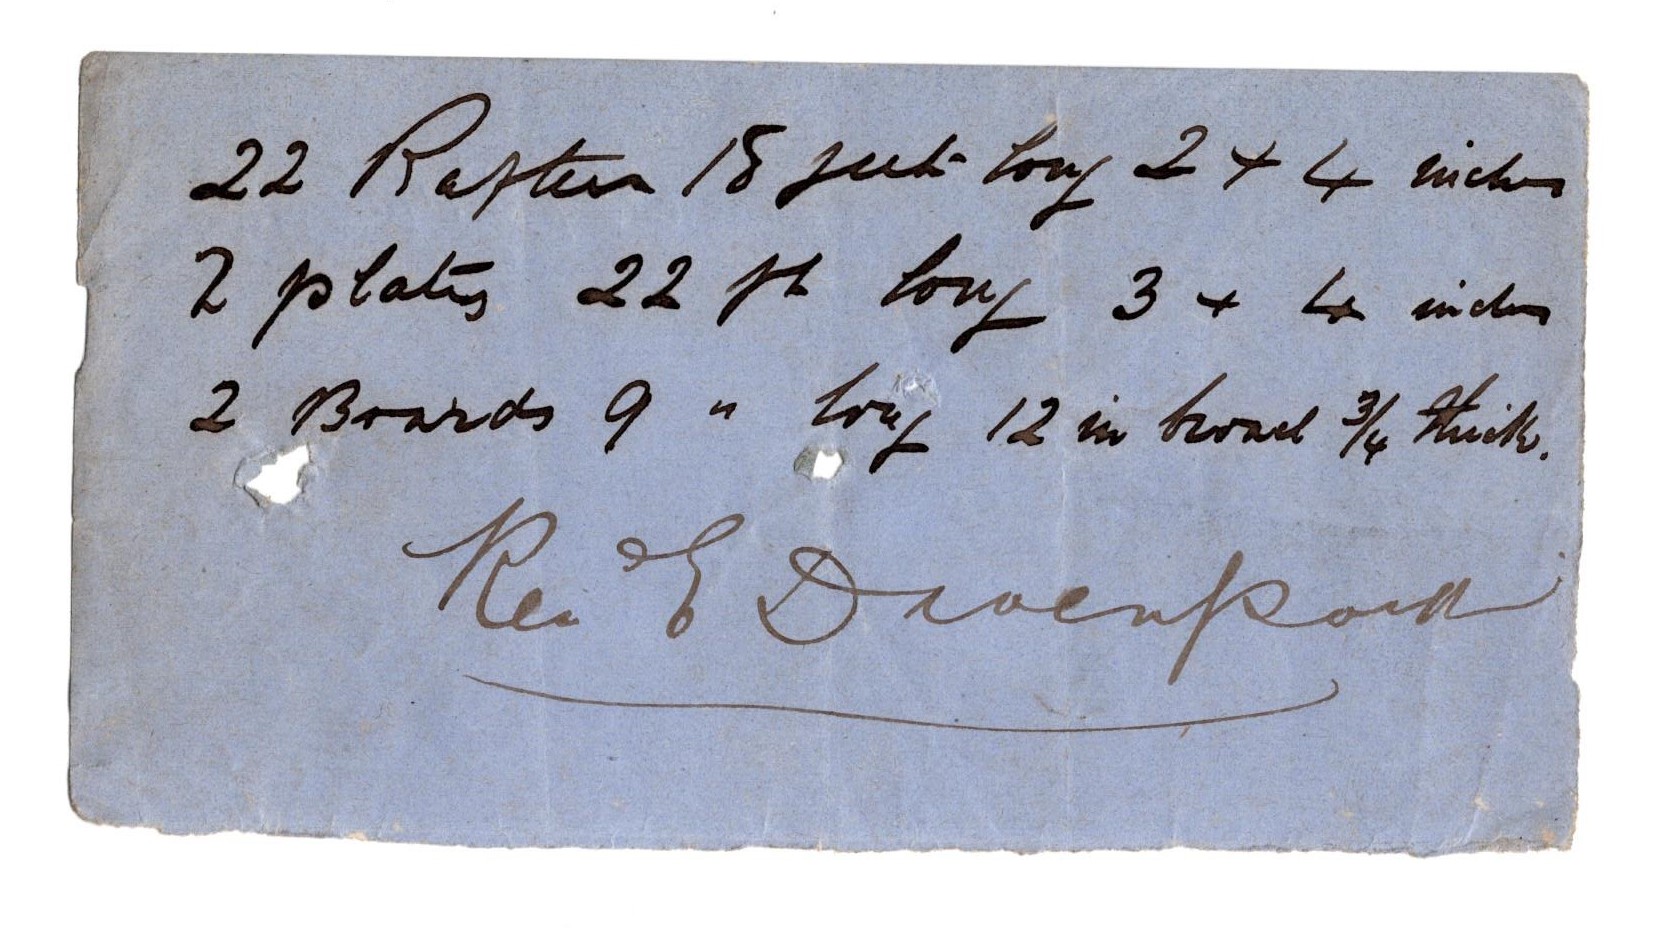 22 Rafters 18 feet long 2 + 4 inches
2 plates 22 ft long 3 + 4 inches
2 Boards 9 " long 12 in broad 3/4 thick.
Rev E Davenport